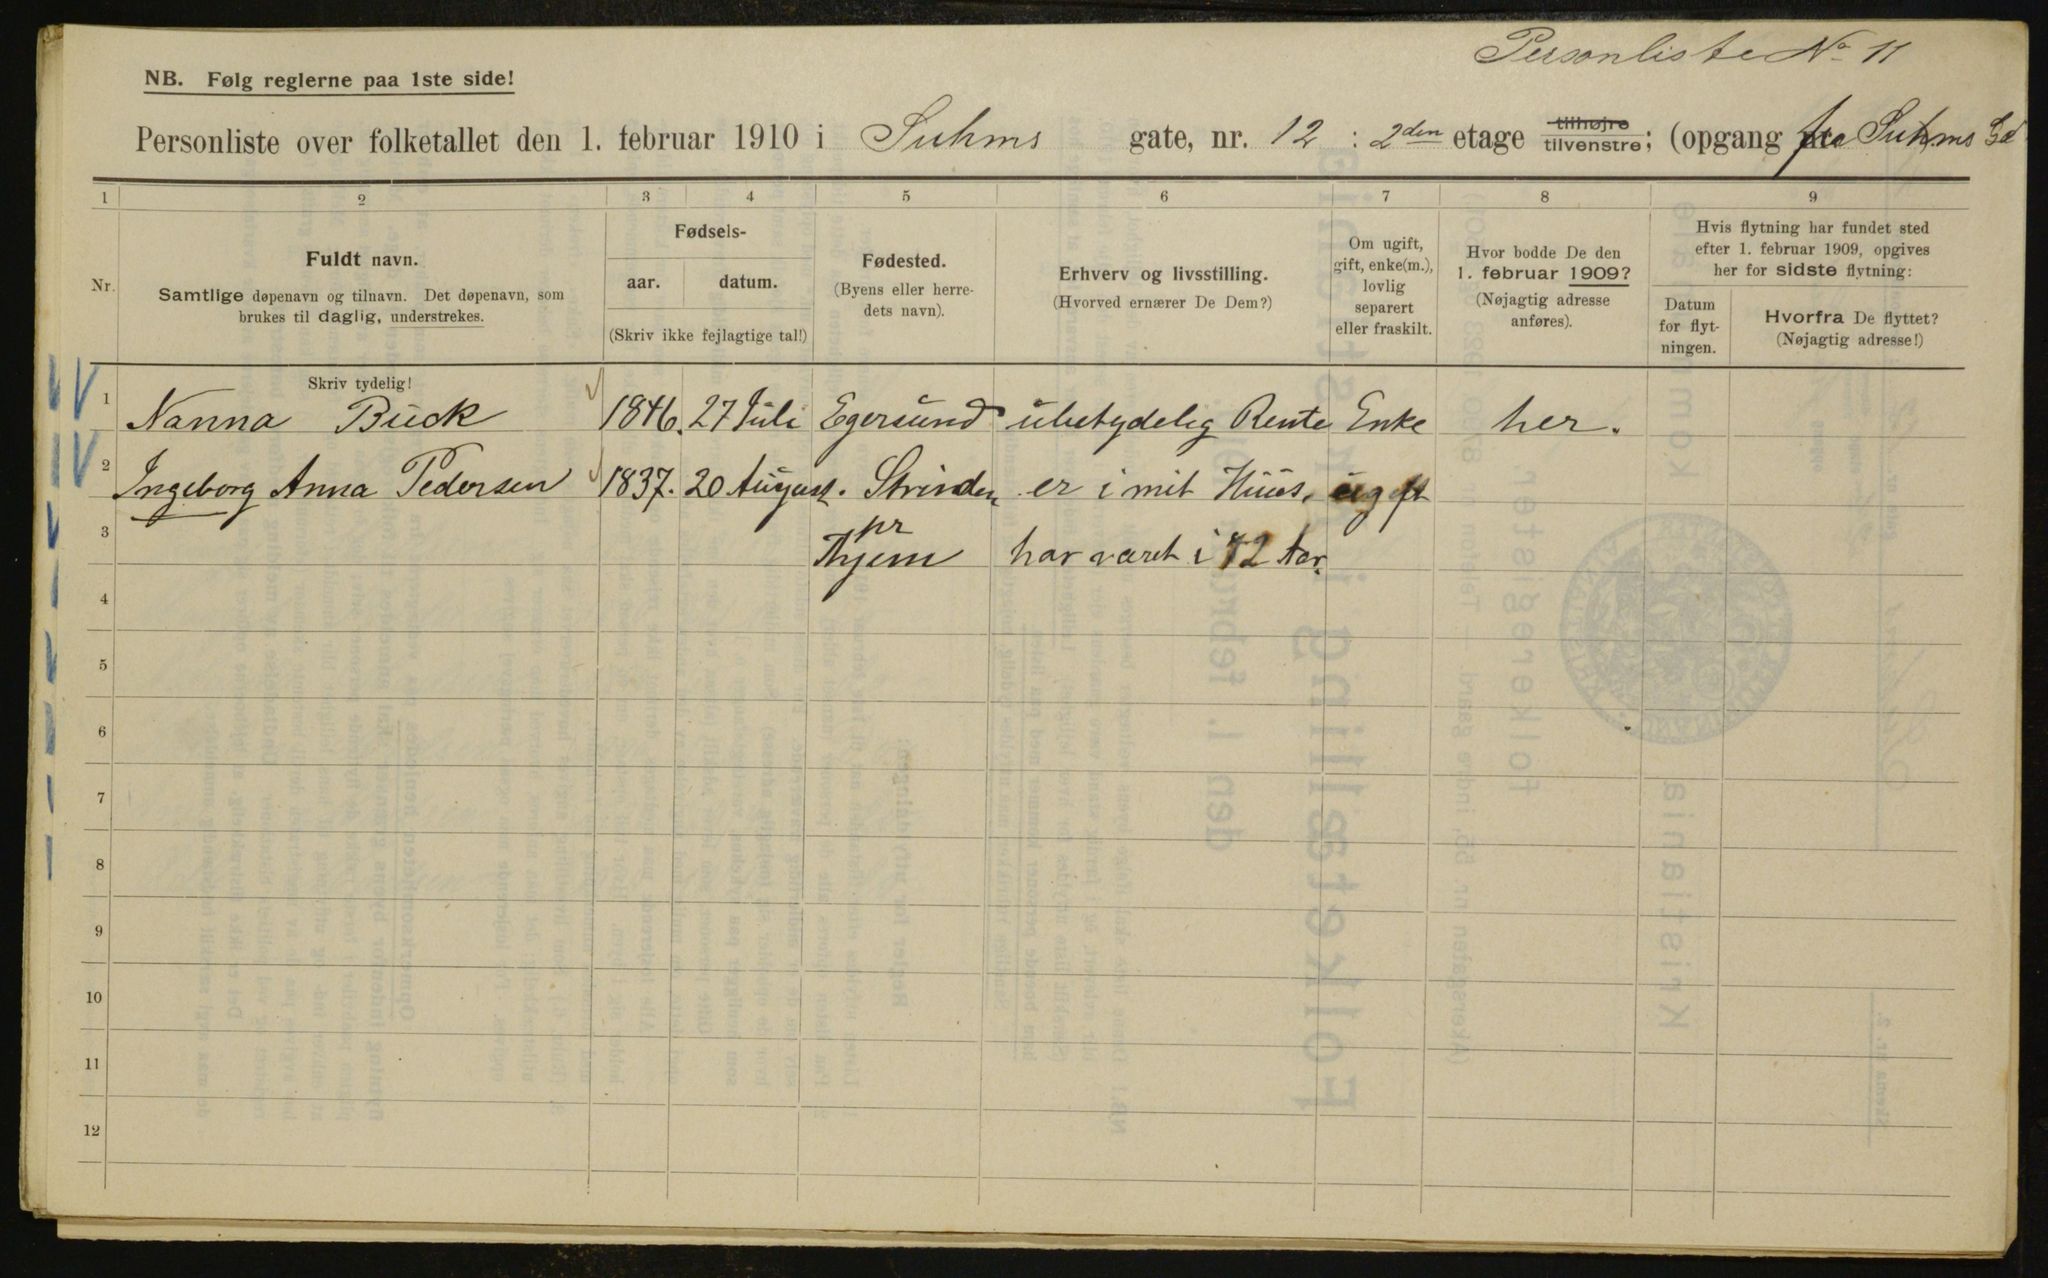 Personliste No 11
NB. Følg reglerne paa 1ste side!
Personliste over folketallet den 1. februar 1910 i Suhms gate, nr. 12 : 2den etage tilhøjre tilvenstre; (opgang fra Suhms Gd
1 2 3 4 5 6 7 8 9
Nr.
Fuldt navn.
Samtlige døpenavn og tilnavn. Det døpenavn, som
brukes til daglig, understrekes.
Skriv tydelig!
Fødsels-
aar. datum.
(Skriv ikke fejlagtige tal!)
Fødested.
(Byens eller herre-
dets navn).
Erhverv og livsstilling.
(Hvorved ernærer De Dem?)
Om ugift,
gift, enke(m.),
lovlig
separert
eller fraskilt.
Hvor bodde De den
1. februar 1909?
(Nøjagtig adresse
anføres).
Hvis flytning har fundet sted
efter 1. februar 1909, opgives
her for sidste flytning:
Datum
for flyt-
ningen.
Hvorfra De flyttet?
(Nøjagtig adresse!)
1 Nanna Buck 1846. 27 Juli Egersund ubetydelig Rente Enke her.
2 Ingeborg Anna Pedersen 1837. 20 August. Strinden er i mit Huus. ugift
pr
3 Thjem har været i 42 Aar.
4
5
6
7
8
9
10
11
12